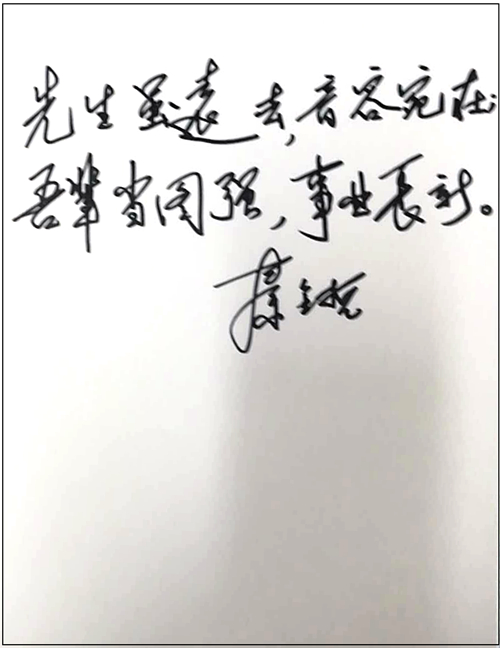 先生虽远去，音容宛在
吾辈当图强，事业长新。